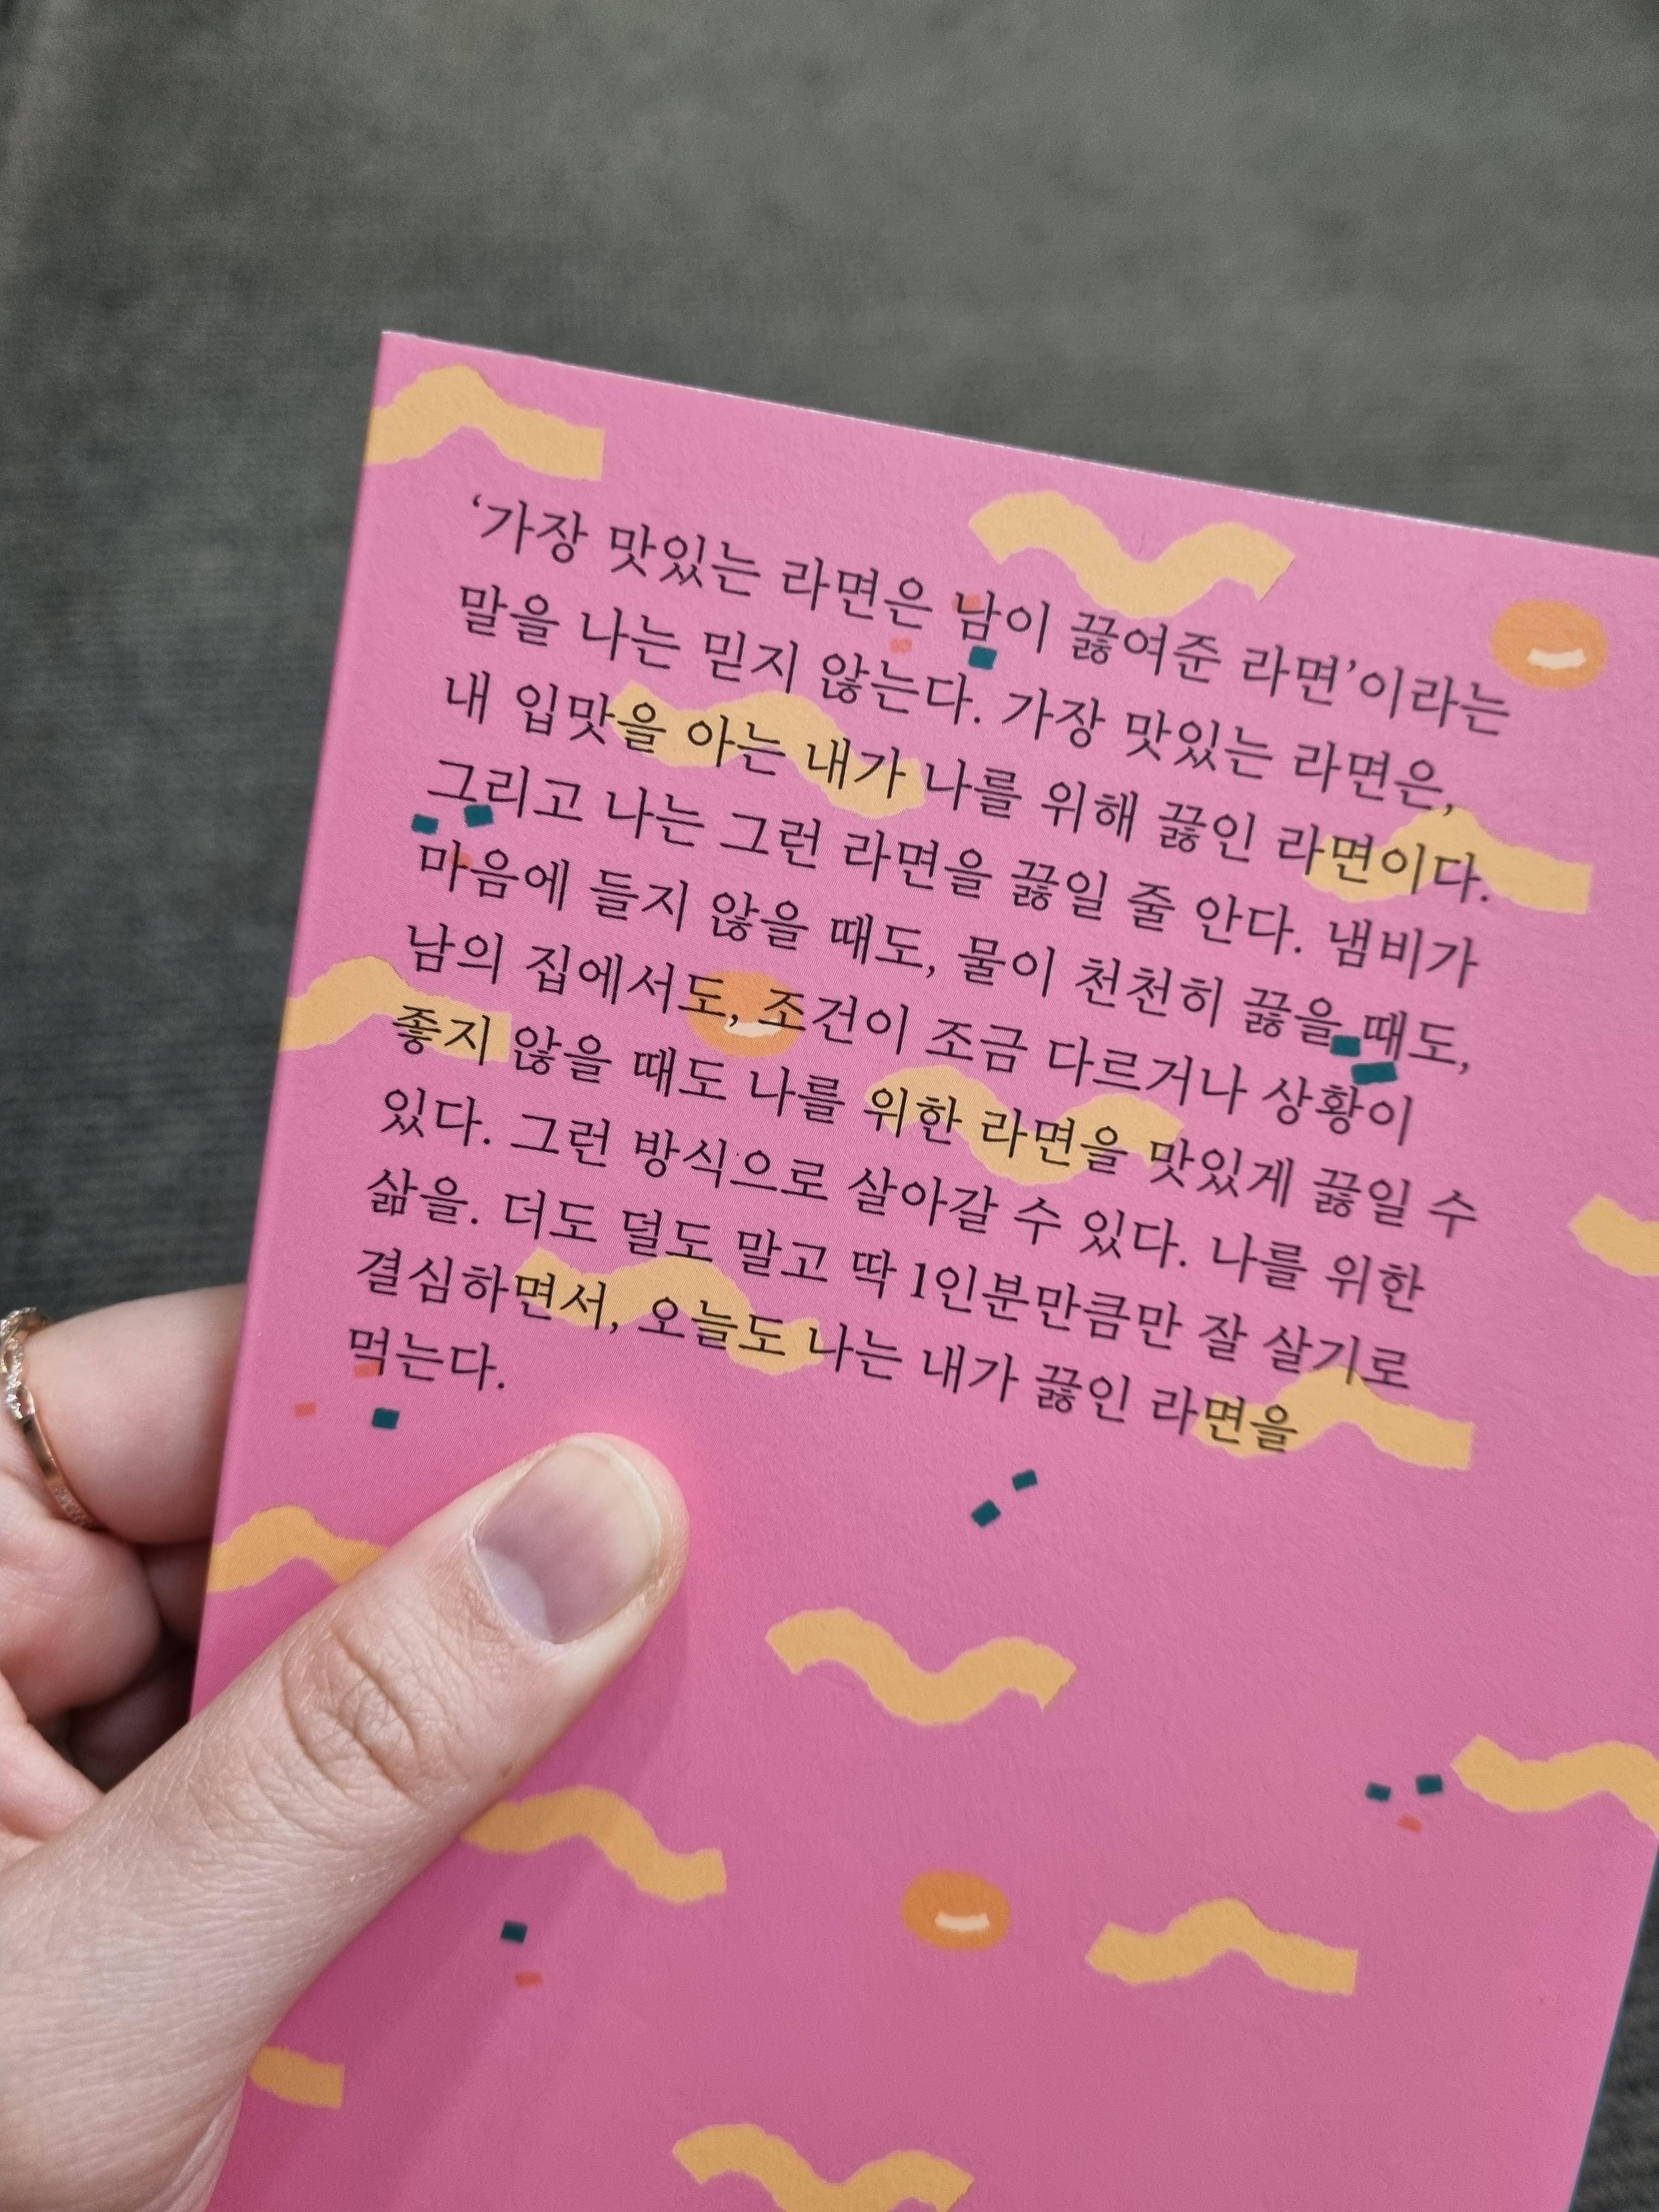 ‘가장 맛있는 라면은 남이 끓여준 라면’이라는
말을 나는 믿지 않는다. 가장 맛있는 라면은,
내 입맛을 아는 내가 나를 위해 끓인 라면이다.
그리고 나는 그런 라면을 끓일 줄 안다. 냄비가
마음에 들지 않을 때도, 물이 천천히 끓을 때도,
남의 집에서도, 조건이 조금 다르거나 상황이
좋지 않을 때도 나를 위한 라면을 맛있게 끓일 수
있다. 그런 방식으로 살아갈 수 있다. 나를 위한
삶을. 더도 덜도 말고 딱 1인분만큼만 잘 살기로
결심하면서, 오늘도 나는 내가 끓인 라면을
먹는다.